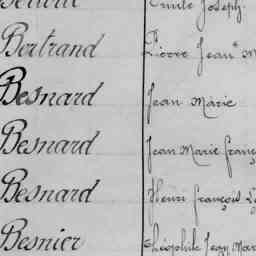 Emile Joseph
Bertrand Pierre Jean M
Besnard Jean Marie
Besnard Jean Marie Franç
Besnard Henri François
Besnier Théophile Jean Mar